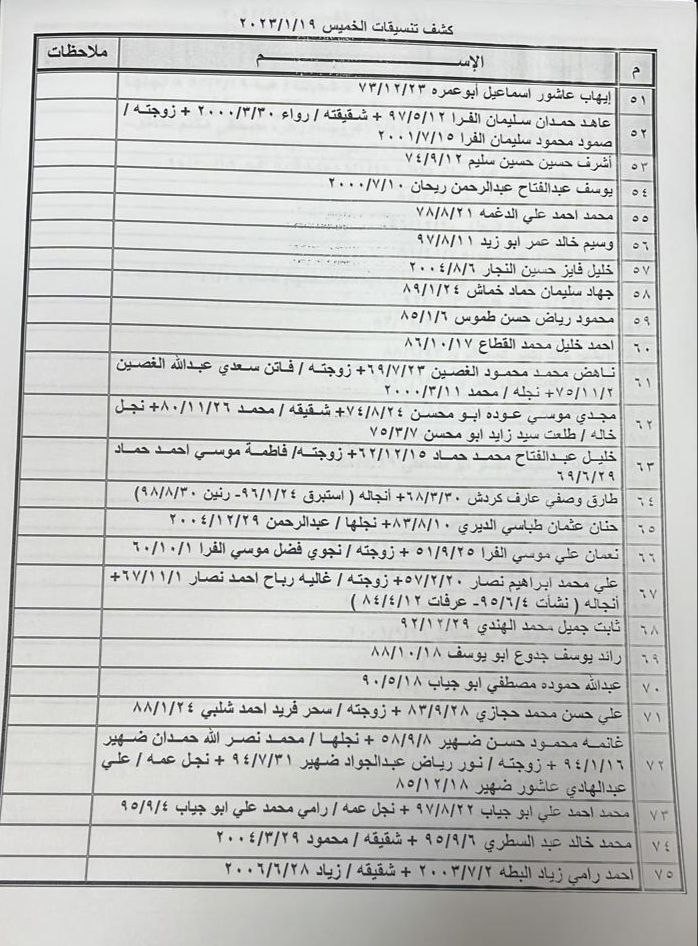 كشف تنسيقات الخميس ٢٠٢٣/١/١٩
م الإســـــــــــــــم ملاحظات
٥١ إيهاب عاشور اسماعيل أبوعمره ٧٣/١٢/٢٣
٥٢ عاهد حمدان سليمان الفرا ٩٧/٥/١٢ + شقيقته / رواء ٢٠٠٠/٣/٣٠ + زوجته /
صمود محمود سليمان الفرا ٢٠٠١/٧/١٥
٥٣ أشرف حسين حسين سليم ٧٤/٩/١٢
٥٤ يوسف عبدالفتاح عبدالرحمن ريحان ٢٠٠٠/٧/١٠
٥٥ محمد احمد علي الدغمه ٧٨/٨/٢١
٥٦ وسيم خالد عمر ابو زيد ٩٧/٨/١١
٥٧ خليل فايز حسين النجار ٢٠٠٤/٨/٦
٥٨ جهاد سليمان حماد خماش ٨٩/١/٢٤
٥٩ محمود رياض حسن طموس ٨٥/١/٦
٦٠ احمد خليل محمد القطاع ٨٦/١٠/١٧
٦١ ناهض محمد محمود الغصين ٦٩/٧/٢٣+ زوجته / فاتن سعدي عبدالله الغصين
٧٥/١١/٢+ نجله / محمد ٢٠٠٠/٣/١١
٦٢ مجدي موسي عوده ابو محسن ٧٤/٨/٢٤+ شقيقه / محمد ٨٠/١١/٢٦+ نجل
خاله / طلعت سيد زايد ابو محسن ٧٥/٣/٧
٦٣ خليل عبدالفتاح محمد حماد ٦٢/١٢/١٥+ زوجته/ فاطمة موسي احمد حماد
٦٩/٦/٢٩
٦٤ طارق وصفي عارف كردش ٦٨/٣/٣٠+ أنجاله ( استبرق ٩٦/١/٢٤- رنين ٩٨/٨/٣٠)
٦٥ حنان عثمان طباسي الديري ٨٣/٨/١٠+ نجلها / عبدالرحمن ٢٠٠٤/١٢/٢٩
٦٦ نعمان علي موسي الفرا ٥١/٩/٢٥ + زوجته / نجوي فضل موسي الفرا ٦٠/١٠/١
٦٧ علي محمد ابراهيم نصار ٥٧/٢/٢٠+ زوجته / غاليه رباح احمد نصار ٦٧/١١/١+
أنجاله ( نشأت ٩٥/٦/٤- عرفات ٨٤/٤/١٢ )
٦٨ ثابت جميل محمد الهندي ٩٢/١٢/٢٩
٦٩ رائد يوسف جدوع ابو يوسف ٨٨/١٠/١٨
٧٠ عبدالله حموده مصطفي ابو جياب ٩٠/٥/١٨
٧١ علي حسن محمد حجازي ٨٣/٩/٢٨ + زوجته / سحر فريد احمد شلبي ٨٨/١/٢٤
٧٢ غانمه محمود حسن ضهير ٥٨/٩/٨ + نجلها / محمد نصر الله حمدان ضهير
٩٤/١/١٦ + زوجته / نور رياض عبدالجواد ضهير ٩٤/٧/٣١ + نجل عمه / علي
عبدالهادي عاشور ضهير ٨٥/١٢/١٨
٧٣ محمد احمد علي ابو جياب ٩٧/٨/٢٢ + نجل عمه / رامي محمد علي ابو جياب ٩٥/٩/٤
٧٤ محمد خالد عبد السطري ٩٥/٩/٦ + شقيقه / محمود ٢٠٠٤/٣/٢٩
٧٥ احمد رامي زياد البطه ٢٠٠٣/٧/٢ + شقيقه / زياد ٢٠٠٦/٦/٢٨